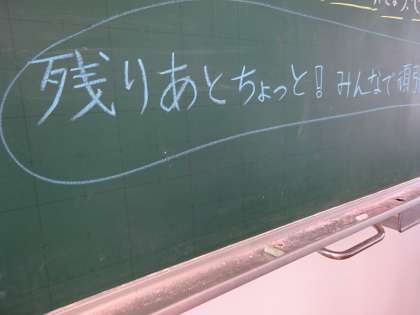 残りあとちょっと!みんなで頑